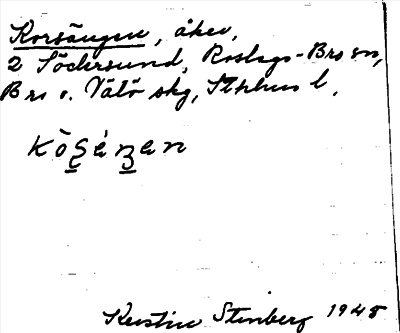 Korsängen, åker,
2 Södersund, Roslags-Bro sn,
Bro o. Vätö skg, Sthlms l.
Kerstin Stenberg 1948